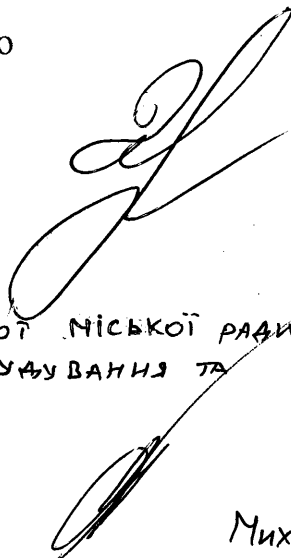 о
ої міської ради
удування та
Мих